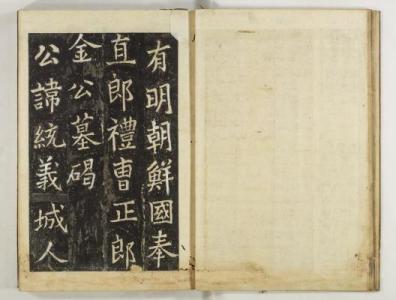 有明朝鮮國奉
直郎禮曹正郎
金公墓碣
公諱統義城人